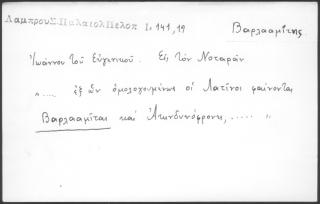 Λάμπρου Σ. Παλαιολ Πελοπ Ι. 141,19
Βαρλααμίτης
Ἰωάννου τοῦ Εὐγενικοῦ. Εἰς τὸν Νοταρᾶν
"..... ἐξ ὧν ὁμολογουμένως οἱ Λατῖνοι φαίνονται
Βαρλααμῖται καὶ Ἀκινδυνόφρονες, ..... "